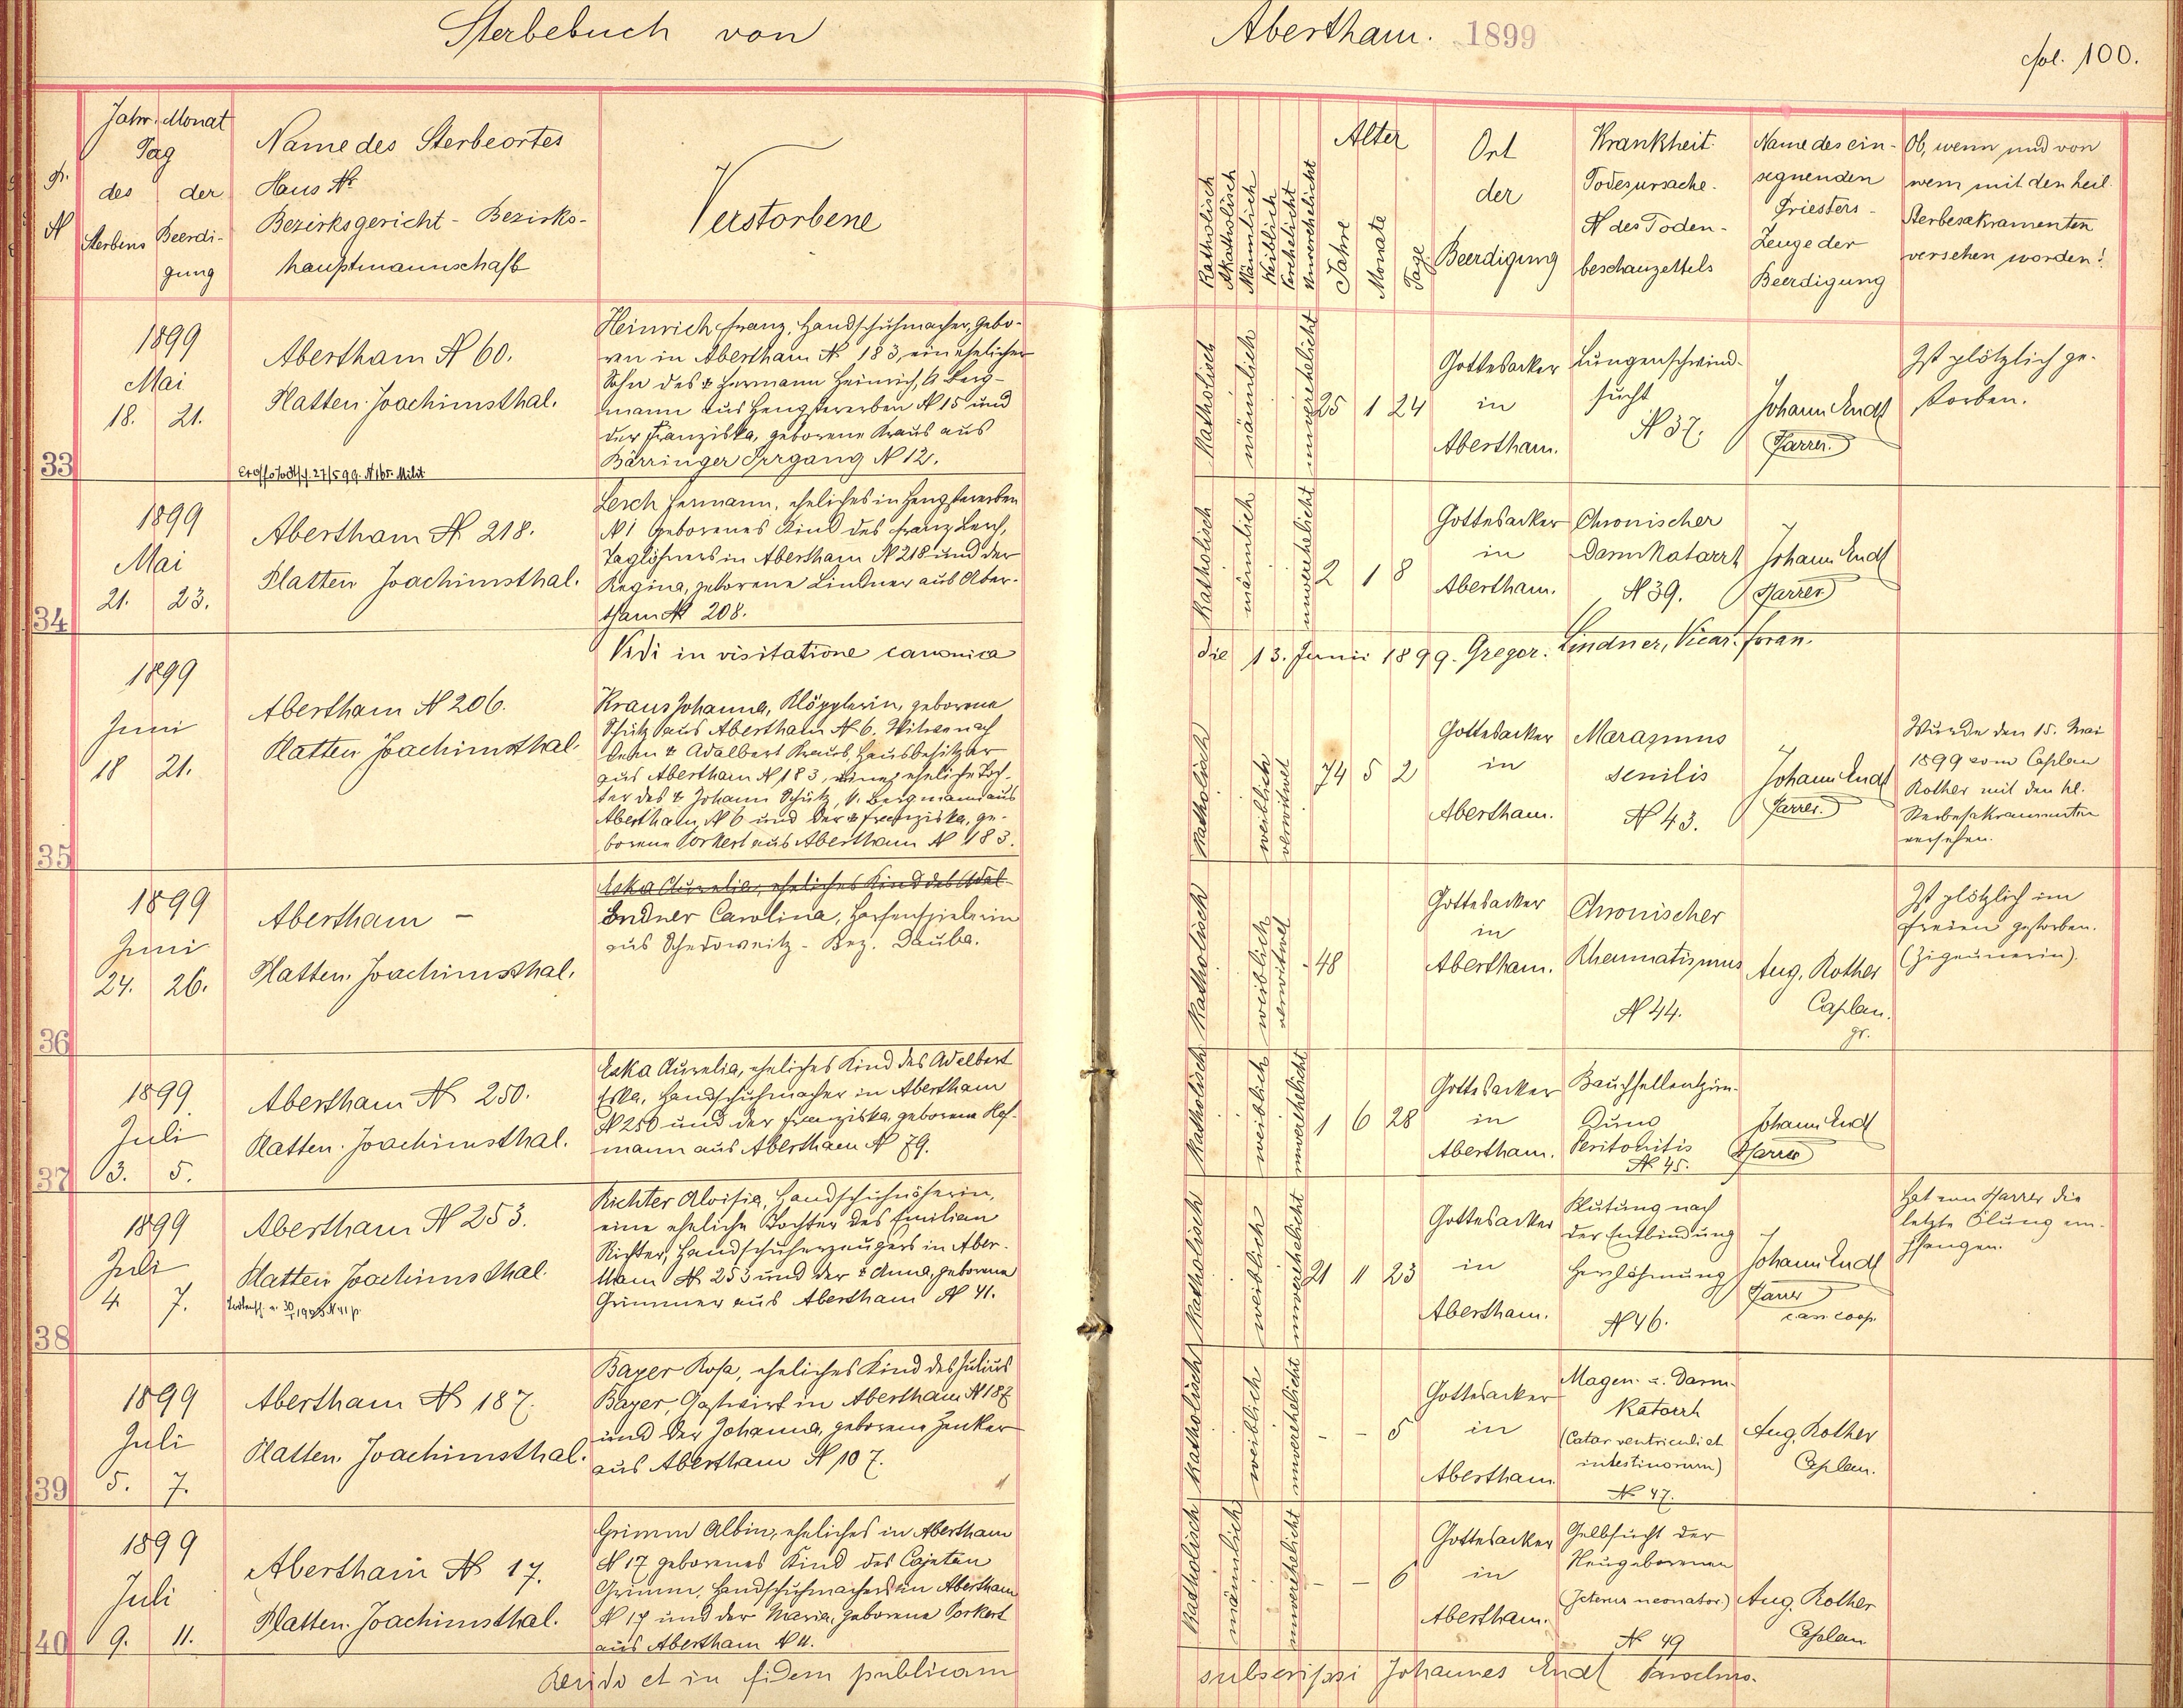 Sterbebuch von
Abertham. 1899
fol. 100.
Jahr. Monat
Tag
des der
Sterbens Beerdi-
gung
Name des Sterbeortes
Haus №
Bezirksgericht - Bezirks-
hauptmannschaft
Verstorbene
Katholisch
Akatholisch
Männlich
Weiblich
Verehelicht
Unverehelicht
Alter
Jahre
Monate
Tage
Ort
der
Beerdigung
Krankheit.
Todesursache.
№ des Toden-
beschauzettels
Name des ein-
segnenden
Priesters -
Zeuge der
Beerdigung
Ob, wenn und von
wem mit den heil.
Sterbesakramenten
versehen worden!
33
1899
Mai
18. 21.
Abertham № 60.
Platten. Joachimsthal.
Heinrich Franz, Handschuhmacher, gebo-
ren in Abertham № 183, ein ehelicher
Sohn des † Hermann Heinrich, Berg-
mann aus Hengstererben № 15 und
der Franziska, geborene Kraus aus
Bärringer Irrgang № 12.
Katholisch
männlich
unverehelicht
25 1 24
Gottesacker
in
Abertham.
Lungenschwind-
sucht
№ 37.
Johann Endt
Pfarrer.
Ist plötzlich ge-
storben.
34
1899
Mai
21. 23.
Abertham № 218.
Platten Joachimsthal.
Lerch Hermann, eheliches in Hengstererben
№ 1 geborenes Kind des Franz Lerch,
Taglöhners in Abertham № 218 und der
Regina, geborene Lindner aus Aber-
tham № 208.
Katholisch
männlich
unverehelicht
2 1 8
Gottesacker
in
Abertham.
Chronischer
Darmkatarrh
№ 39.
Johann Endt
Pfarrer
Vidi in visitatione canonica
die 13. Junii 1899. Gregor. Lindner, Vicar. foran.
35
1899
Juni
18 21.
Abertham № 206.
Platten Joachimsthal.
Kraus Johanna, Klöpplerin, geborene
Schütz aus Abertham № 6. Witwe nach
dem † Adalbert Kraus, Hausbesitzer
aus Abertham № 183, eine eheliche Toch-
ter des † Johann Schütz, Bergmann aus
Abertham № 6 und der † Franziska, ge-
borene Porkert aus Abertham № 183.
Katholisch
weiblich
verwitwet
74 5 2
Gottesacker
in
Abertham.
Marasmus
senilis
№ 43.
Johann Endt
Pfarrer.
Wurde den 15. Mai
1899 vom Caplan
Rother mit den hl.
Sterbesakramenten
versehen.
36
1899
Juni
24. 26.
Abertham -
Platten. Joachimsthal.
Eska Aurelia, eheliches Kind des Adal-
Endner Carolina, Harfenspielerin
aus Schedoweitz - Bez. Dauba.
Katholisch
weiblich
verwitwet
48
Gottesacker
in
Abertham.
Chronischer
Rheumatismus
№ 44.
Aug. Rother
Caplan.
Ist plötzlich im
Freien gestorben.
(Zigeunerin).
37
1899
Juli
3. 5.
Abertham № 250.
Platten. Joachimsthal.
Eska Aurelia, eheliches Kind des Adalbert
Eska, Handschuhmacher in Abertham
№ 250 und der Franziska, geborene Hof-
mann aus Abertham № 79.
Katholisch
weiblich
unverehelicht
1 6 28
Gottesacker
in
Abertham.
Bauchfellentzün-
dung
Peritonitis
№ 45.
Johann Endt
Pfarrer
38
1899
Juli
4 7.
Abertham № 253.
Platten Joachimsthal.
Richter Aloisia, Handschuhnäherin,
eine eheliche Tochter des Emilian
Richter, Handschuherzeugers in Aber-
tham № 253 und der † Anna, geborene
Grimmer aus Abertham № 41.
Katholisch
weiblich
unverehelicht
21 11 23
Gottesacker
in
Abertham.
Blutung nach
der Entbindung
Herzlähmung
№ 46.
Johann Endt
Pfarrer
Hat vom Pfarrer die
letzte Ölung em-
pfangen.
39
1899
Juli
5. 7.
Abertham № 187.
Platten. Joachimsthal.
Bayer Rosa, eheliches Kind des Julius
Bayer, Gastwirt in Abertham № 187
und der Johanna, geborene Zenker
aus Abertham № 107.
Katholisch
weiblich
unverehelicht
- - 5
Gottesacker
in
Abertham
Magen- u. Darm-
Katarrh
(Catar ventriculi et
intestinorum)
№ 47.
Aug. Rother
Caplan.
40
1899
Juli
9. 11.
Abertham № 17.
Platten. Joachimsthal.
Grimm Albin, eheliches in Abertham
№ 17 geborenes Kind des Cajetan
Grimm, Handschuhmachers in Abertham
№ 17 und der Maria, geborene Porkert
aus Abertham № 11.
Katholisch
männlich
unverehelicht
- - 6
Gottesacker
in
Abertham.
Gelbsucht der
Neugeborenen
(Icterus neonator.)
№ 49
Aug. Rother
Caplan
et in fidem publicam
subscripsi Johannes Endt